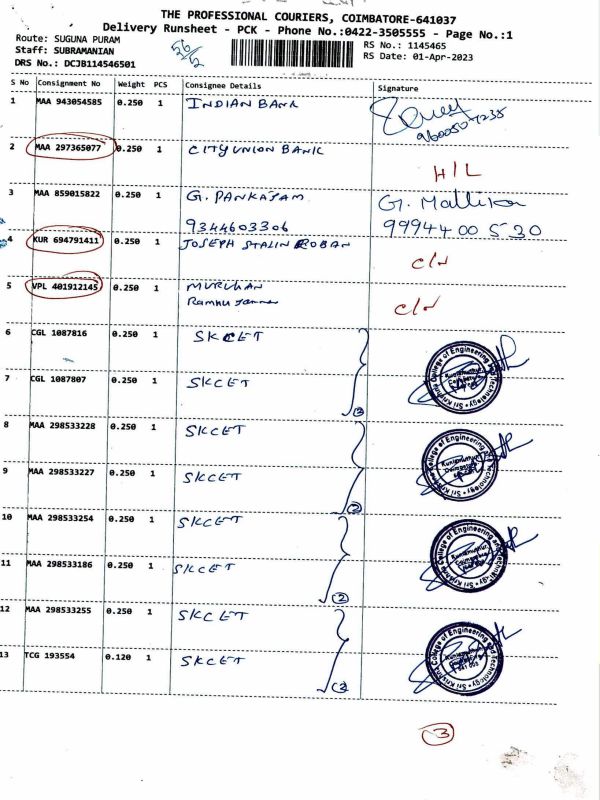 THE PROFESSIONAL COURIERS, COIMBATORE-641037
Delivery Runsheet - PCK - Phone No.:0422-3505555 - Page No.:1
Route: SUGUNA PURAM
Staff: SUBRAMANIAN
DRS No.: DCJB114546501
56/2
RS No.: 1145465
RS Date: 01-Apr-2023
S No Consignment No Weight PCS Consignee Details Signature
1 MAA 943054585 0.250 1 INDIAN BANK
2 MAA 297365077 0.250 1 CITY UNION BANK H/L
3 MAA 859015822 0.250 1 G. PANKAJAM G. Mallika
9344603306 9994400530
4 KUR 694791411 0.250 1 JOSEPH STALIN ROBAN C/N
5 VPL 401912145 0.250 1 MURUGAN C/N
6 CGL 1087816 0.250 1 SKCET
7 CGL 1087807 0.250 1 SKCET (2)
8 MAA 298533228 0.250 1 SKCET
9 MAA 298533227 0.250 1 SKCET (2)
10 MAA 298533254 0.250 1 SKCET
11 MAA 298533186 0.250 1 SKCET (2)
12 MAA 298533255 0.250 1 SKCET
13 TCG 193554 0.120 1 SKCET (2)
Sri Krishna College of Engineering and Technology
Sri Krishna College of Engineering and Technology
Sri Krishna College of Engineering and Technology
Sri Krishna College of Engineering and Technology
3